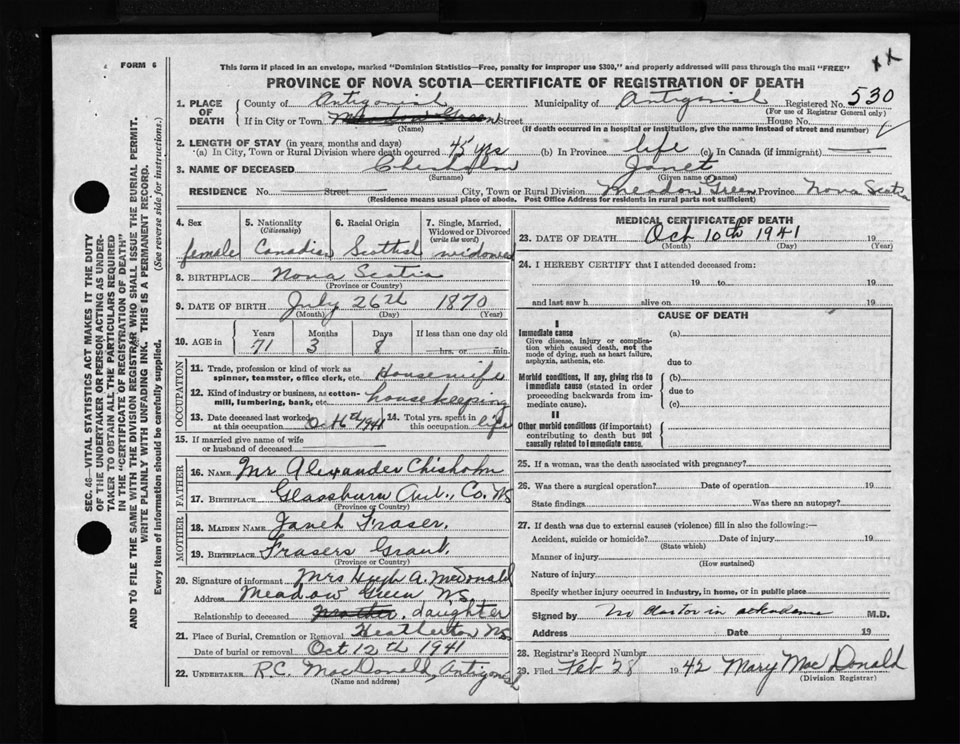 FORM 6
This form if placed in an envelope, marked "Dominion Statistics—Free, penalty for improper use $300," and properly addressed will pass through the mail "FREE"
XX
PROVINCE OF NOVA SCOTIA—CERTIFICATE OF REGISTRATION OF DEATH
1. PLACE OF DEATH County of Antigonish Municipality of Antigonish Registered No. 530
(For use of Registrar General only)
If in City or Town Meadow Green Street House No.
(Name) (If death occurred in a hospital or institution, give the name instead of street and number)
2. LENGTH OF STAY (in years, months and days)
(a) In City, Town or Rural Division where death occurred 45 yrs (b) In Province life (c) In Canada (if immigrant)
3. NAME OF DECEASED Chisholm Janet
(Surname) (Given name or names)
RESIDENCE No. Street City, Town or Rural Division Meadow Green Province Nova Scotia
(Residence means usual place of abode. Post Office Address for residents in rural parts not sufficient)
4. Sex 5. Nationality (Citizenship) 6. Racial Origin 7. Single, Married, Widowed or Divorced (write the word)
female Canadian Scottish widowed
8. BIRTHPLACE Nova Scotia
(Province or Country)
9. DATE OF BIRTH July 26th 1870
(Month) (Day) (Year)
10. AGE in Years Months Days If less than one day old
71 3 8 hrs. or min.
OCCUPATION
11. Trade, profession or kind of work as spinner, teamster, office clerk, etc. Housewife
12. Kind of industry or business, as cotton-mill, lumbering, bank, etc. housekeeping
13. Date deceased last worked at this occupation Oct 6th 1941 14. Total yrs. spent in this occupation life
15. If married give name of wife or husband of deceased
FATHER
16. NAME Mr Alexander Chisholm
17. BIRTHPLACE Glassburn Ant., Co. NS
(Province or Country)
MOTHER
18. MAIDEN NAME Janet Fraser.
19. BIRTHPLACE Frasers Grant.
(Province or Country)
20. Signature of informant Mrs Hugh A. McDonald
Address Meadow Green NS.
Relationship to deceased Mother, daughter
21. Place of Burial, Cremation or Removal Heatherton, NS
Date of burial or removal Oct 12th 1941
22. UNDERTAKER R.C. MacDonald, Antigonish
(Name and address)
MEDICAL CERTIFICATE OF DEATH
23. DATE OF DEATH Oct 10th 1941 19
(Month) (Day) (Year)
24. I HEREBY CERTIFY that I attended deceased from:
19 to 19
and last saw h alive on 19
CAUSE OF DEATH
I
Immediate cause (a)
Give disease, injury or complication which caused death, not the mode of dying, such as heart failure, asphyxia, asthenia, etc.
due to
Morbid conditions, if any, giving rise to immediate cause (stated in order proceeding backwards from immediate cause). (b)
due to
(c)
II
Other morbid conditions (if important) contributing to death but not causally related to immediate cause.
25. If a woman, was the death associated with pregnancy?
26. Was there a surgical operation? Date of operation 19
State findings Was there an autopsy?
27. If death was due to external causes (violence) fill in also the following:—
Accident, suicide or homicide? Date of injury 19
(State which)
Manner of injury
(How sustained)
Nature of injury
Specify whether injury occurred in industry, in home, or in public place
Signed by no doctor in attendance M.D.
Address Date 19
28. Registrar's Record Number
29. Filed Feb 28 1942 Mary MacDonald
(Division Registrar)
SEC. 46—VITAL STATISTICS ACT MAKES IT THE DUTY
OF THE UNDERTAKER OR PERSON ACTING AS UNDER-
TAKER TO OBTAIN ALL THE PARTICULARS REQUIRED
IN THE "CERTIFICATE OF REGISTRATION OF DEATH"
AND TO FILE THE SAME WITH THE DIVISION REGISTRAR WHO SHALL ISSUE THE BURIAL PERMIT.
WRITE PLAINLY WITH UNFADING INK. THIS IS A PERMANENT RECORD.
Every item of information should be carefully supplied. (See reverse side for instructions.)